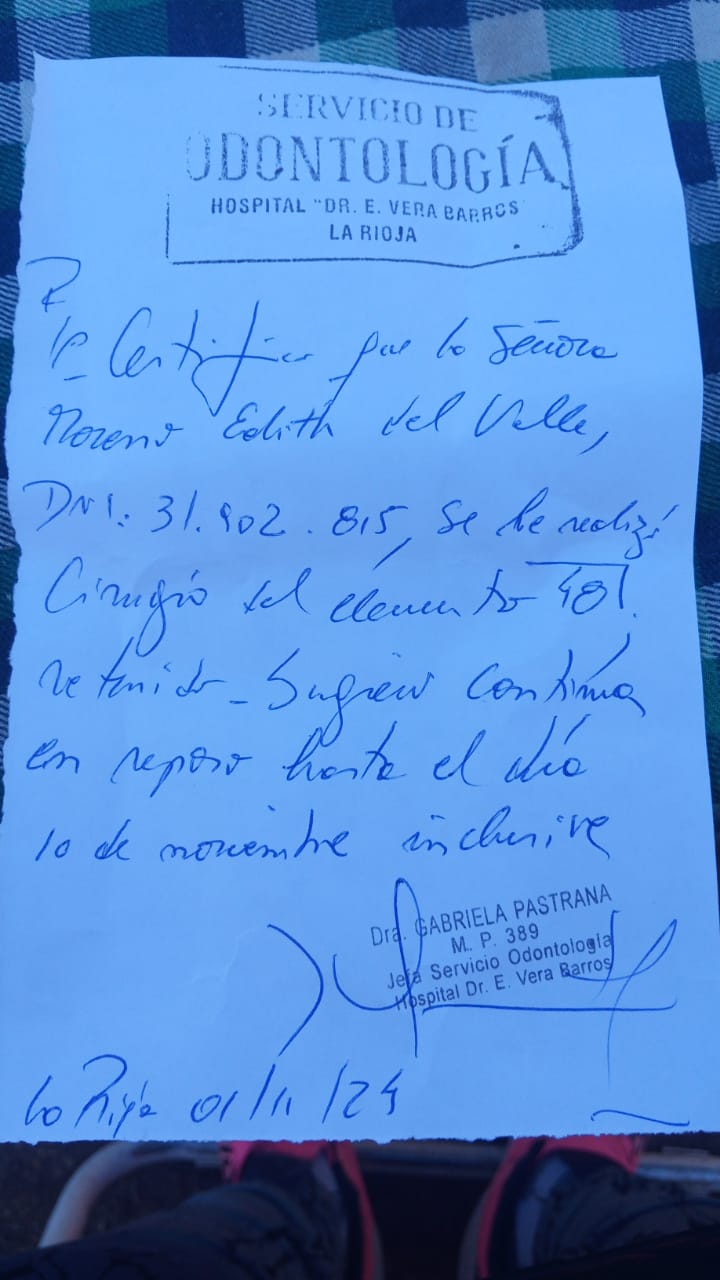 SERVICIO DE
ODONTOLOGÍA
HOSPITAL "DR. E. VERA BARROS"
LA RIOJA
Certifico que la Señora
Moreno Edith del Valle,
DNI: 31.902.815, se le realizó
Cirugía del elemento
retenido - Sugiero continúa
en reposo hasta el día
10 de noviembre inclusive
Dra. GABRIELA PASTRANA
M. P. 389
Jefa Servicio Odontología
Hospital Dr. E. Vera Barros
La Rioja 01/11/24